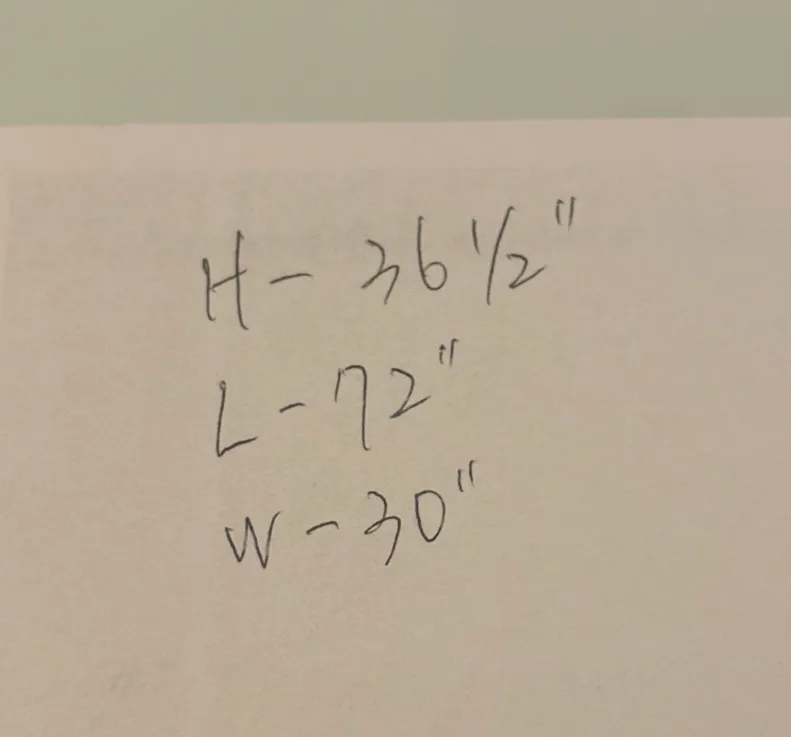 H - 36 1/2"
L - 72"
W - 30"